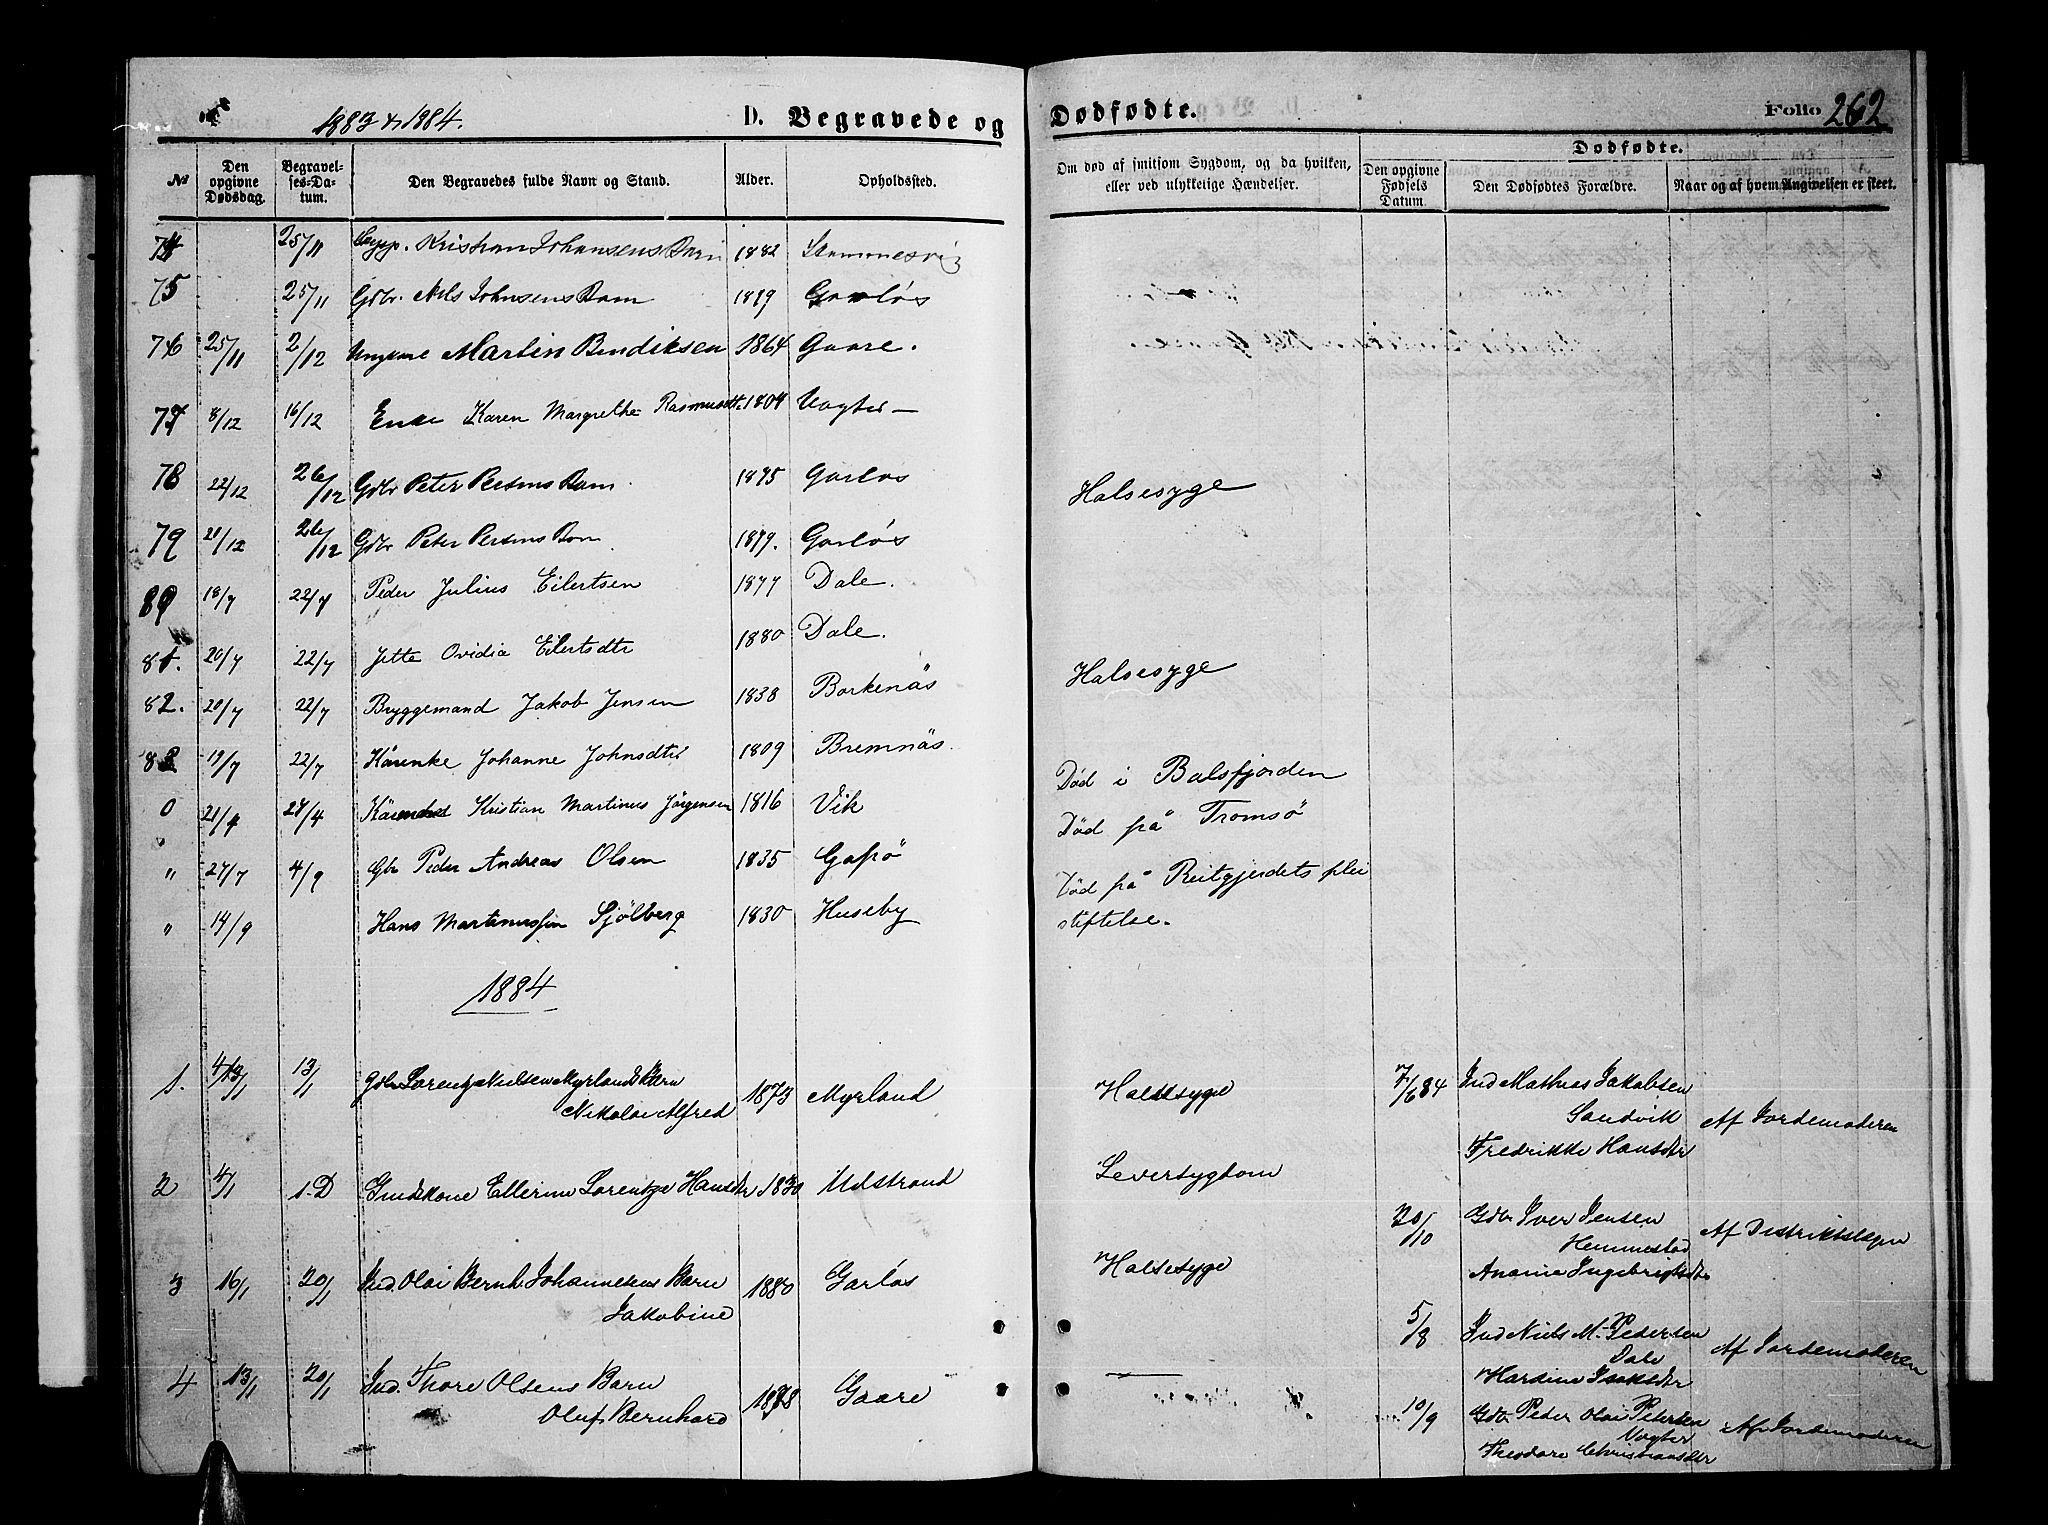 1883 & 1884.
D. Begravede og
Dødfødte.
Folio 262
No
Den opgivne Dødsdag.
Begravelses-Datum.
Den Begravedes fulde Navn og Stand.
Alder.
Opholdssted.
Om død af smitsom Sygdom, og da hvilken, eller ved ulykkelige Hændelser.
Den opgivne Fødsels Datum.
Dødfødte.
Den Dødfødtes Forældre.
Naar og af hvem Angivelsen er skeet.
74 25/11 Kristian Johansens Barn 1882
75 25/11 Gdbr. Nils Johnsens Barn 1879 Garløs
76 25/11 2/12 Ungkarl Martin Bendiksen 1864 Gaare.
77 8/12 16/12 Enke Karen Margrethe Rasmusdtr 1804 Vogter
78 22/12 26/12 Gdbr Peter Persens Barn 1875 Garløs Halsesyge
79 21/12 26/12 Gdbr Peter Persens Barn 1879. Garløs
80 18/7 22/7 Peder Julius Eilertsen 1877 Dale.
81. 20/7 22/7 Jette Ovidia Eilertsdtr 1880 Dale. Halsesyge
82. 20/7 22/7 Byggemand Jakob Jensen 1838 Borkenäs
83 19/7 22/7 Johanne Johnsdtr 1809 Bremnäs.
Død i Balsfjorden
0 21/4 27/4 Kristian Martinus Jörgensen 1816 Vik
Död på Tromsö
" 27/7 4/9 Gbr Peder Andreas Olsen 1835 Gapö
Död på Reitgjerdets plei
" 14/9 Hans Martinussen Sjölberg 1830 Huseby
stiftelse.
1884
1. 4/1 13/1 Gdbr Lorentz Nielsen Myrlands Barn
Nikolai Alfred 1873 Myrland Halsesyge
7/6 84 Ind Mathias Jakobsen
Sandvik
Fredrikke Hansdtr
Af Jordemoderen
2 4/1 1. D Indskone Ellerine Lorentze Hansdtr 1830 Udstrand Leversygdom
20/10 Gdbr Iver Jensen
Hemmestad
Anania Ingebrigtsdtr
Af Distriktslægen
3 16/1 20/1 Ind. Olai Bernh. Johannesens Barn
Jakobine 1880 Garløs Halsesyge
5/8 Ind Niels M. Pedersen
Dale
Hardine Isaksdtr
Af Jordemoderen
4 13/1 20/1 Ind. Thore Olsens Barn
Oluf Bernhard 1878 Gaare —
10/9 Gdbr Peder Olai Petersen
Vogter
Theodore Christiansdtr
Af Jordemoderen